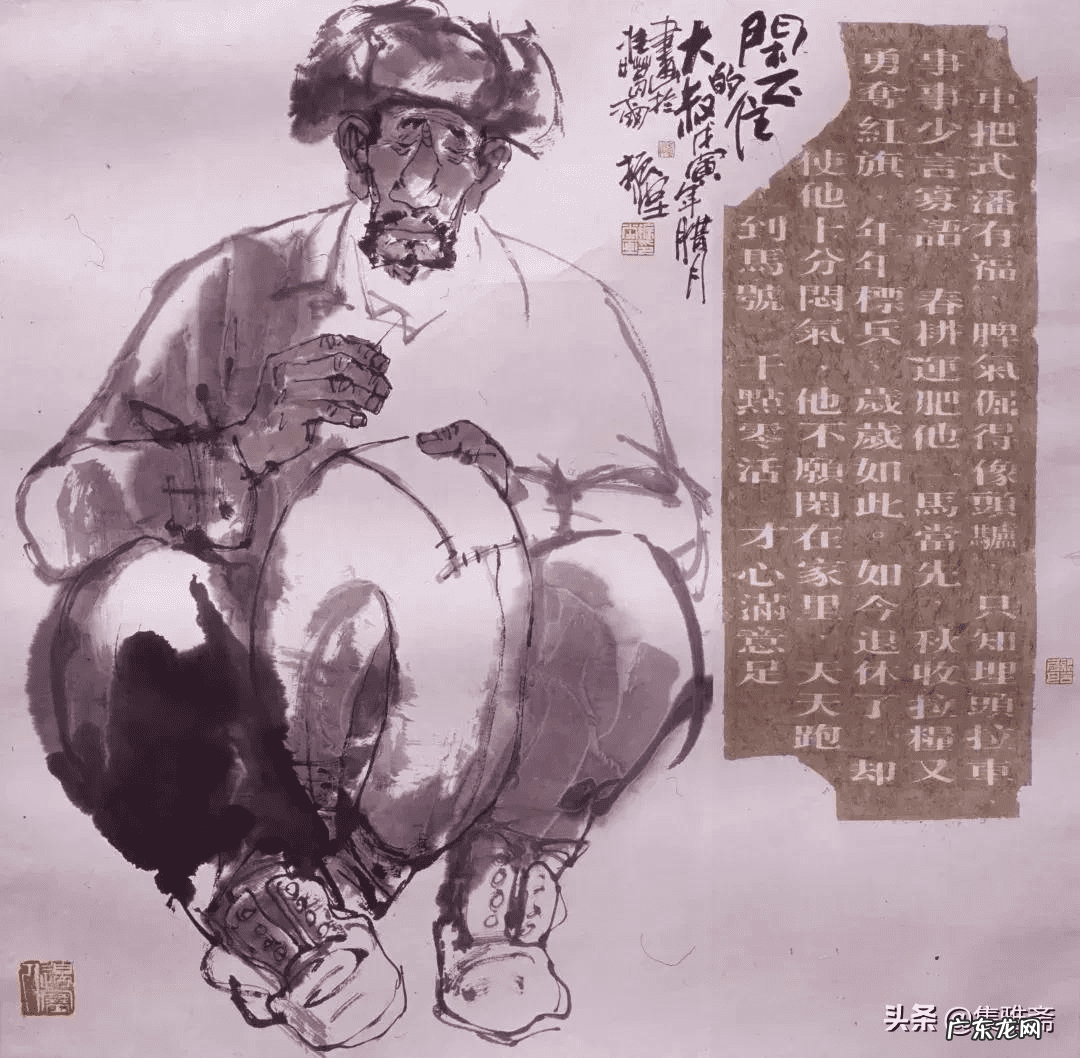 車把式潘有福、脾氣倔得像頭驢 只知埋頭拉車
事事少言寡語 春耕運肥他一馬當先,秋收拉糧又
勇奪紅旗、年年標兵、歲歲如此。如今退休了 却
使他十分悶氣,他不願閑在家里、天天跑
到馬號 干點零活 才心滿意足
閑不住
的
大叔 戊寅年腊月
頭条 @集雅斋
广东龙网